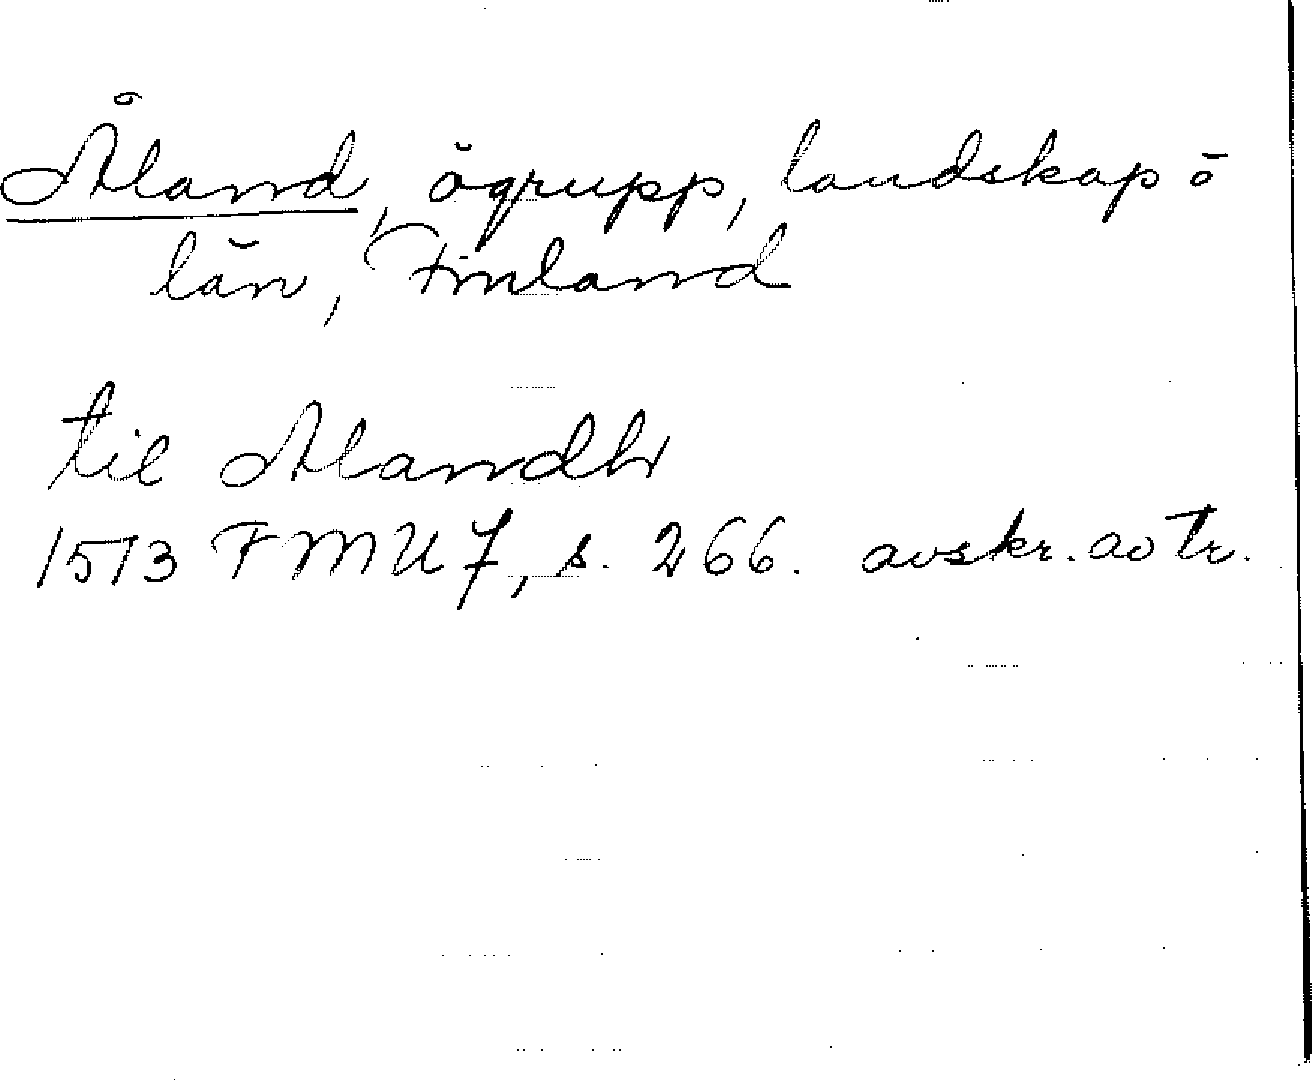 Åland, ögrupp, landskap o
län, Finland
til Alandh
1513 FMU 7, s. 266. avskr. av tr.